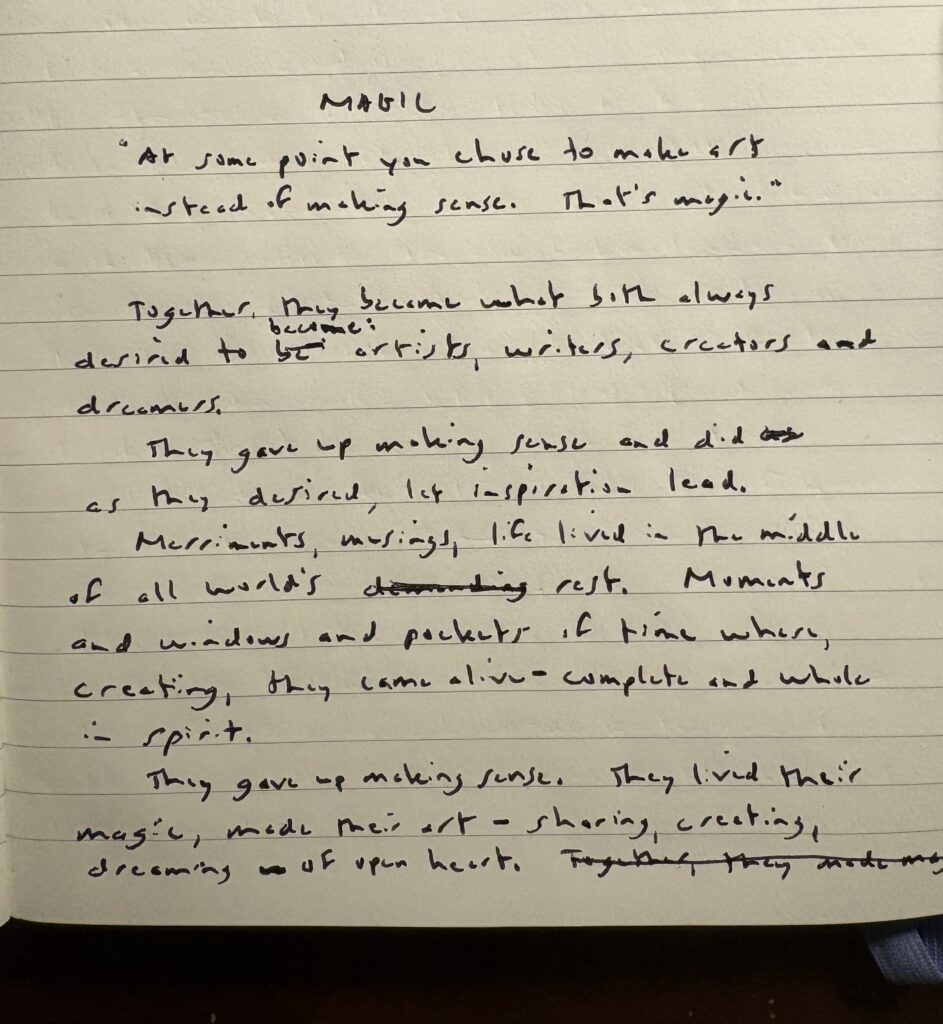 MAGIC
"At some point you chose to make art
instead of making sense. That's magic."
Together, they became what both always
become:
desired to be artists, writers, creators and
dreamers.
They gave up making sense and did as
as they desired, let inspiration lead.
Merriments, musings, life lived in the middle
of all world's demanding rest. Moments
and windows and pockets of time where,
creating, they came alive - complete and whole
in spirit.
They gave up making sense. They lived their
magic, made their art - sharing, creating,
dreaming - of open heart. Together, they made